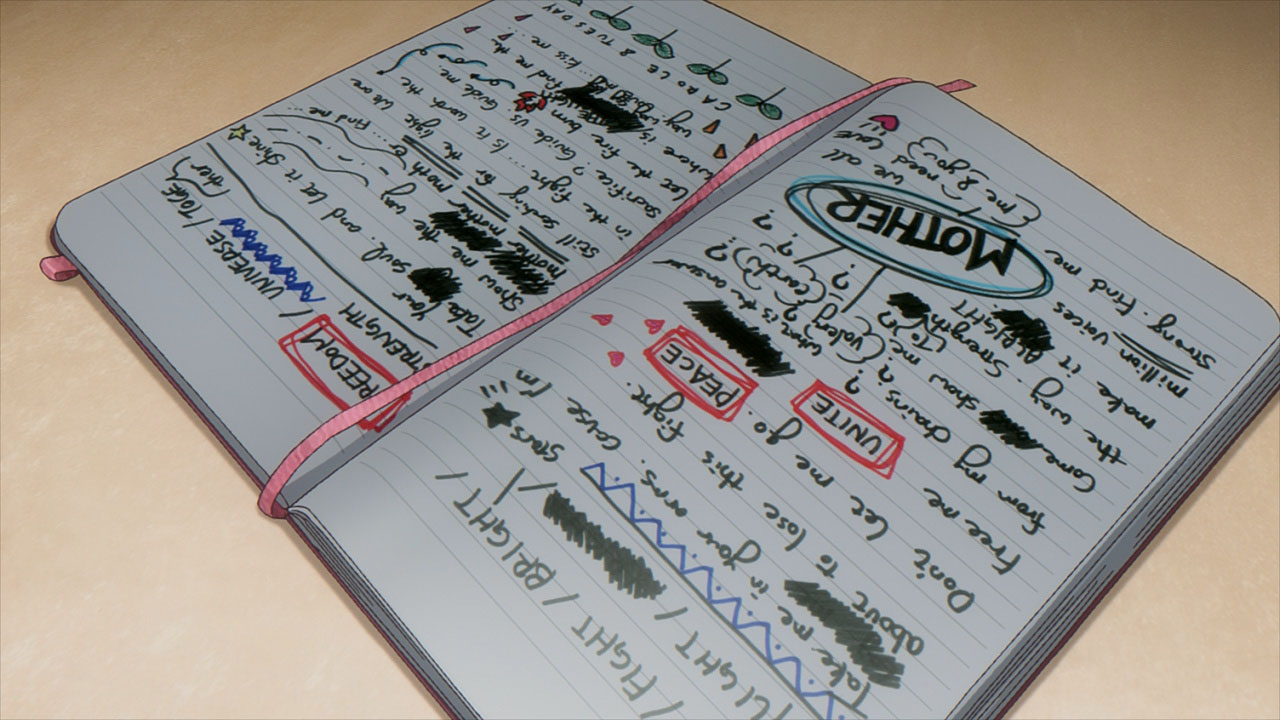 / FIGHT / BRIGHT /
LIGHT / /
stars
Take me in your arms. cause I'm
about to lose this fight.
Don't let me go.
PEACE
Free me
UNITE
from my chains
?
Come show me
the way. Strength
make it BRIGHT
million voices
MOTHER
strong. Find me
we all
need love
(me & you)
FREEDOM
STRENGTH / UNIVERSE / TOGETHER
Take your soul. and let it shine
Show me the way .... Find me
mother mother earth
still seeking for the light
in the fight .... Is it worth the
sacrifice? Guide us Guide me
Let the fire burn
where is find me the
way kiss me ...
CAROLE & TUESDAY